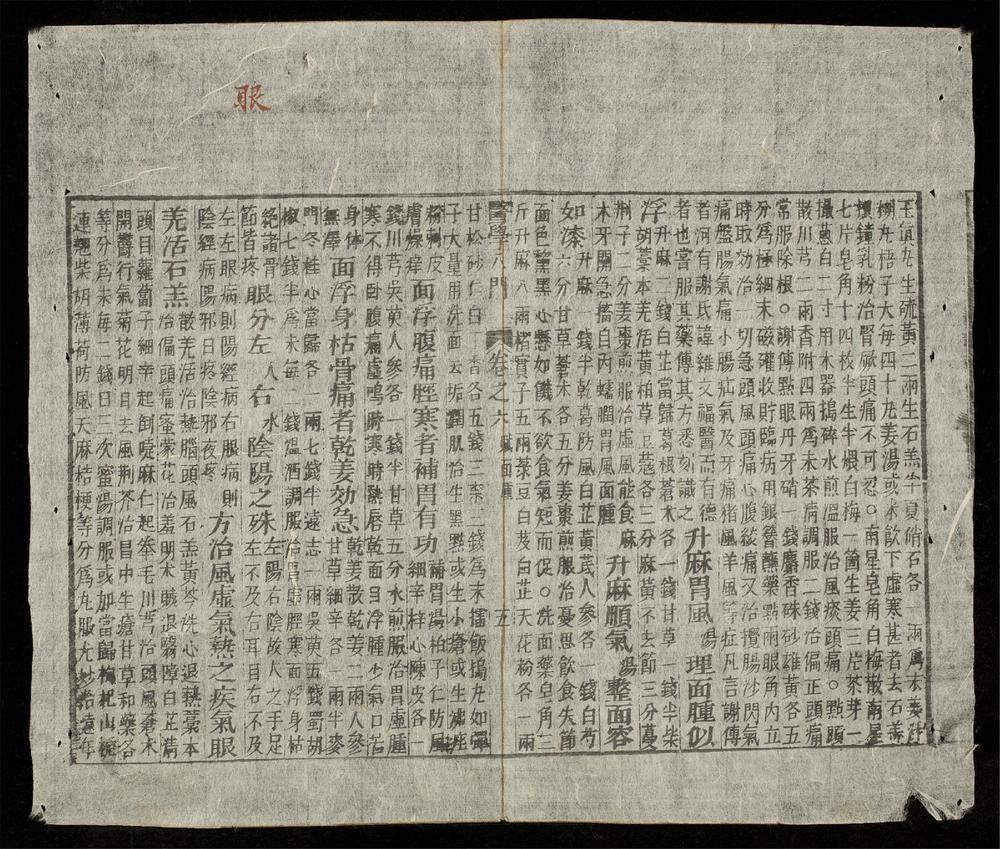 眼
玉真丸生硫黃二兩生石羔半夏硝石各一兩爲末姜汁
糊丸梧子大每四十九姜湯或米飲下虛寒甚者去石羔
用鐘乳粉治腎厥頭痛不可忍○南星皂角白梅散南星
七片皂角十四枚半生半煨白梅一箇生姜三片茶芽一
撮蔥白二寸用木器搗碎水煎溫服治風痰頭痛○點頭
散川芎二兩香附四兩爲末茶清調服二錢治偏正頭痛
常服除根○謝傳點眼丹牙硝一錢麝香硃砂雄黃各五
分爲極細末磁確收貯臨病用銀簪蘸藥點兩眼角內立
時取効治一切急頭風頭痛心腹絞痛又治攪腸沙閃氣
痛盤腸氣痛小腸疝氣及牙痛猪風羊風等症凡言謝傳
者河有謝氏諱維文福醫而有德
者也嘗服其藥傳其方悉刻識之 升麻胃風湯理面腫似
浮升麻二錢白芷當歸葛根蒼朮各一錢甘草一錢半柴
胡藁本羌活黃柏草豆蔻各三分麻黃不去節三分蔓
荆子二分姜棗煎服治虛風能食麻
木牙開急搐目內蠕瞤胃風面腫 升麻順氣湯整面容
如漆升麻一錢半乾葛防風白芷黃芪人參各一錢白芍
六分甘草蒼朮各五分姜棗煎服治憂思飲食失節
面色黧黑心懸如饑不飲食氣短而促○洗面藥皂角三
斤升麻八兩楮實子五兩菉豆白芨白芷天花粉各一兩
甘松砂仁白香各五錢三柰二錢爲末擂飯搗丸如彈
子大量用洗面去垢潤肌治生黑點或生小瘡或生痱痤
粉刺皮
膚燥痒 面浮腹痛脛寒者補胃有功補胃湯柏子仁防風
細辛桂心陳皮各一
錢川芎吳萸人參各一錢半甘草五分水煎服治胃虛腫
寒不得卧腹痛虛鳴時寒時熱唇乾面目浮腫少氣口苦
身体
無澤 面浮身枯骨痛者乾姜効急乾姜散乾姜二兩人參
甘草細辛各一兩半麥
門冬桂心當歸各一兩七錢半遠志一兩吳萸五錢蜀胡
椒七錢半爲末每一錢溫酒調服治胃虛脛寒面浮身枯
絕諸骨
節皆疼 眼分左右水陰陽之殊左陽右陰故人之手足
左不及右耳目右不及
左左眼病則陽經病右眼病則
陰經病陽邪日疼陰邪夜疼 方治風虛氣熱之疾氣眼
羌活石羔散羌活治熱腦頭風石羔黃芩洗心退熱藁本
治偏頭痛蜜蒙花治羞明朮賊退翳障白芷清
頭目蘿蔔子細辛起倒睫麻仁起拳毛川芎治頭風蒼朮
開鬱行氣菊花明目去風荆芥治昌中生瘡甘草和藥各
等分爲末每二錢日三次蜜調服或加當歸枸杞山梔
連翹柴胡薄荷防風天麻桔梗等分爲丸服尤妙治遠年
醫學入門 卷之六 臟面腫 五